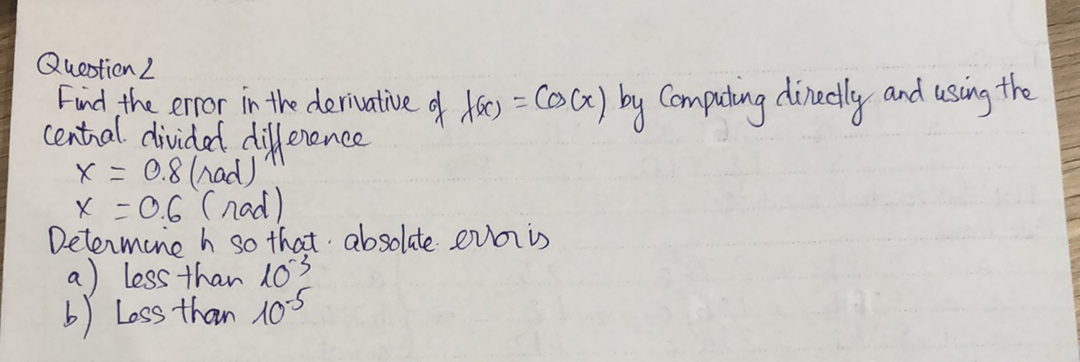 Question 2
Find the error in the derivative of f(x) = Cos(x) by Computing directly and using the
central divided difference
x = 0.8 (rad)
x = 0.6 (rad)
Determine h so that absolute error is
a) less than 10⁻³
b) Less than 10⁻⁵